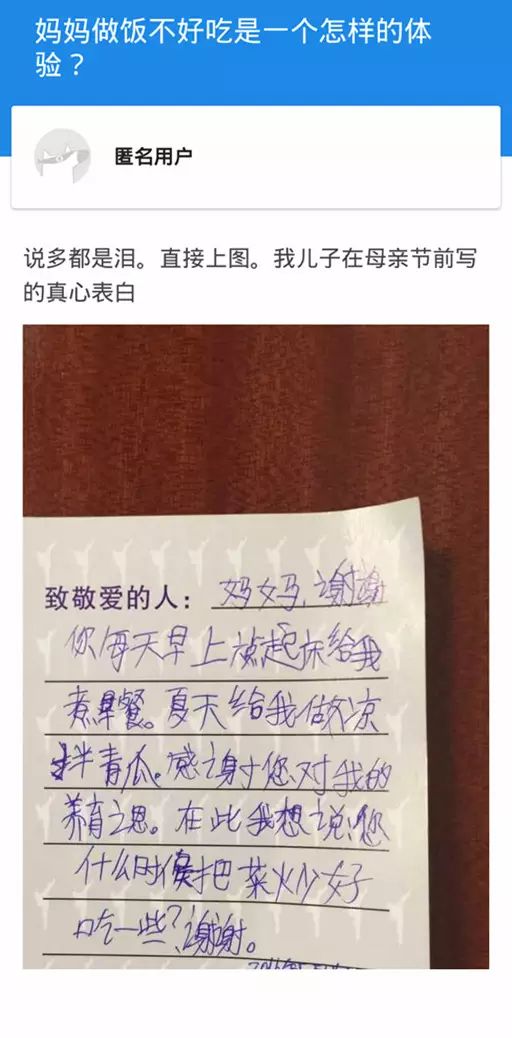 妈妈做饭不好吃是一个怎样的体
验？
匿名用户
说多都是泪。直接上图。我儿子在母亲节前写
的真心表白
致敬爱的人：妈妈，谢谢
你每天早上起床给我
煮早餐。夏天给我做凉
拌青瓜。感谢您对我的
养育之恩。在此我想说：您
什么时候把菜炒好
吃一些？谢谢。